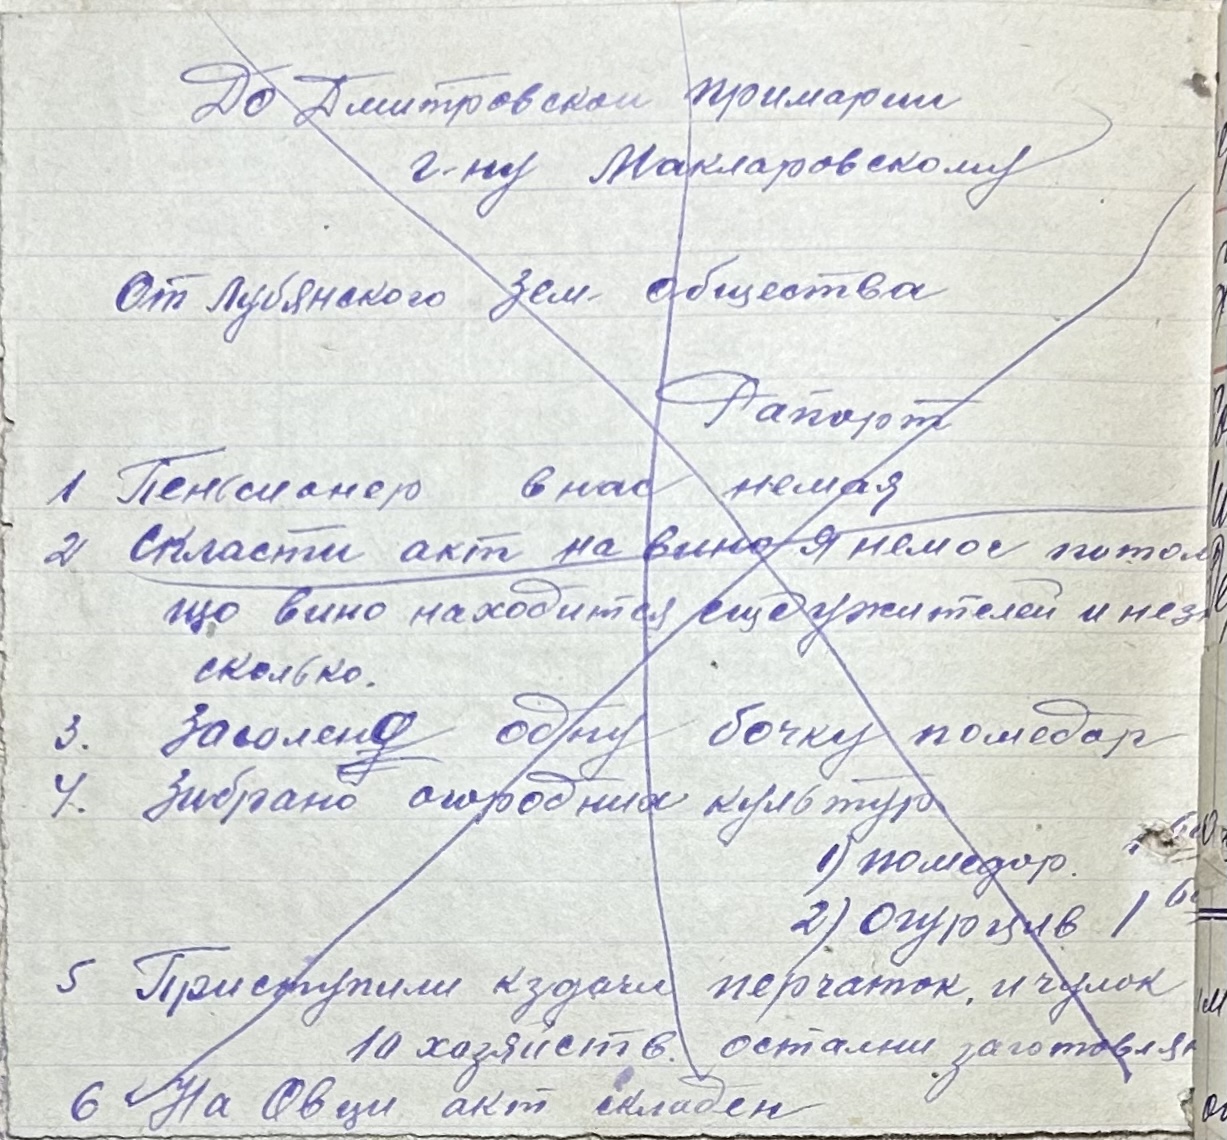 До Дмитровскои примарии
г-ну Макларовскому
От Лубянского Зем- общества
Рапорт
1 Пенсионер внас немая
2 Скласти акт на вино я немос потом
що вино находится еще ужителей и нез
сколько.
3. Засолено одну бочку помедор
4. Зибрано огородних культур
1) помедор.
2) Огурцив 1
5 Приступили кздачи перчаток, и чулок
10 хозяйств. остални заготовлян
6 На Овци акт складен